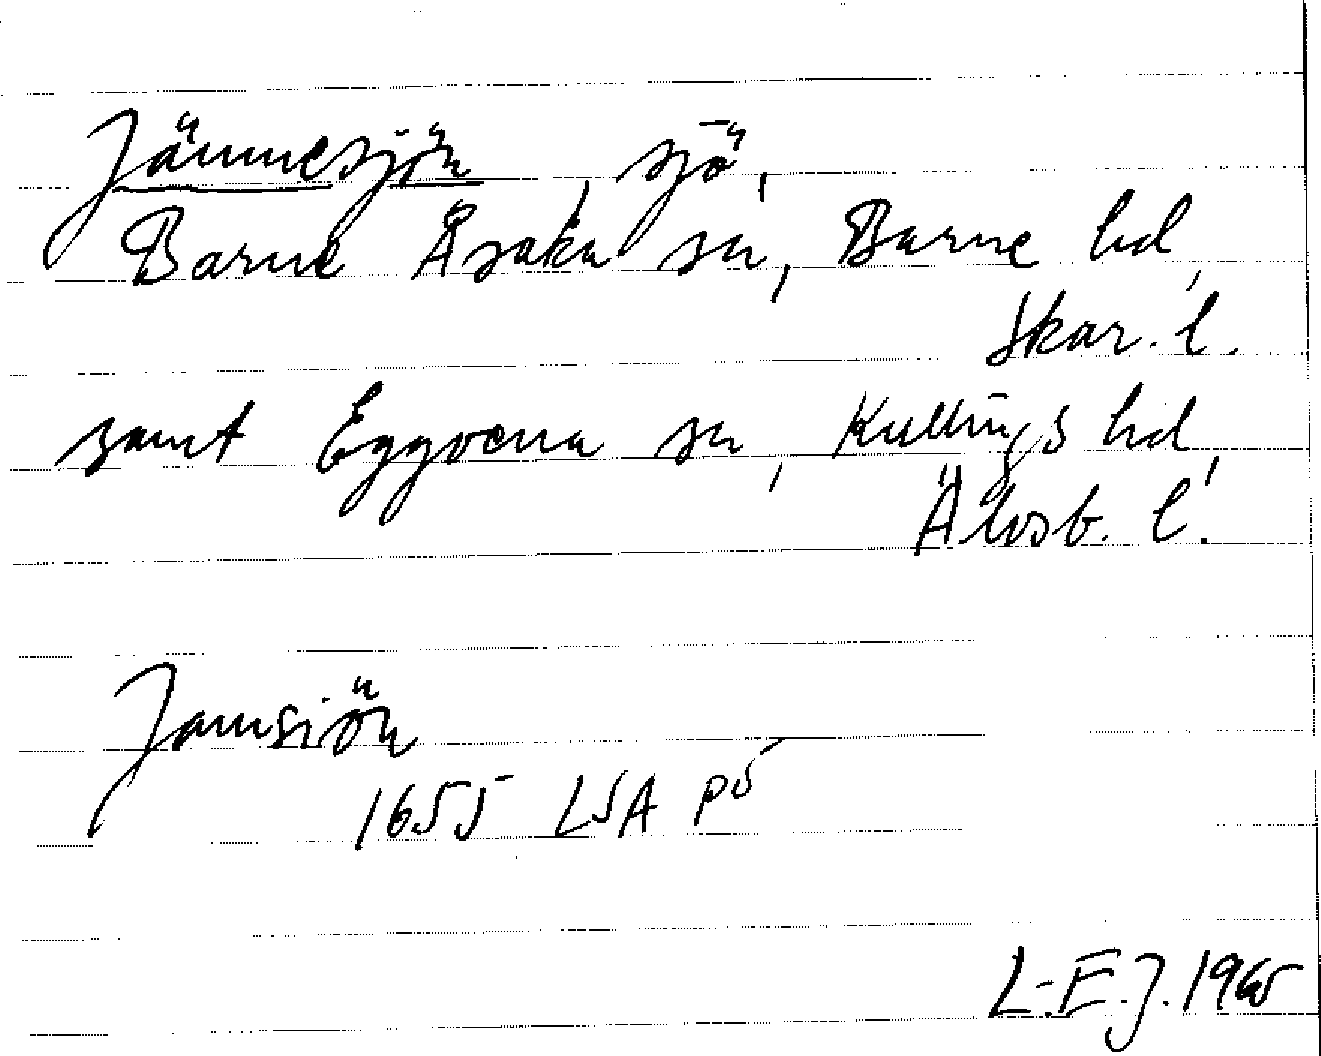 Jännesjön, sjö,
Barne Åsaka sn, Barne hd,
Skar. l.
samt Eggvena sn, Kullings hd,
Älvsb. l.
Jamsiön
1655 LSA på
L-E.J. 1965